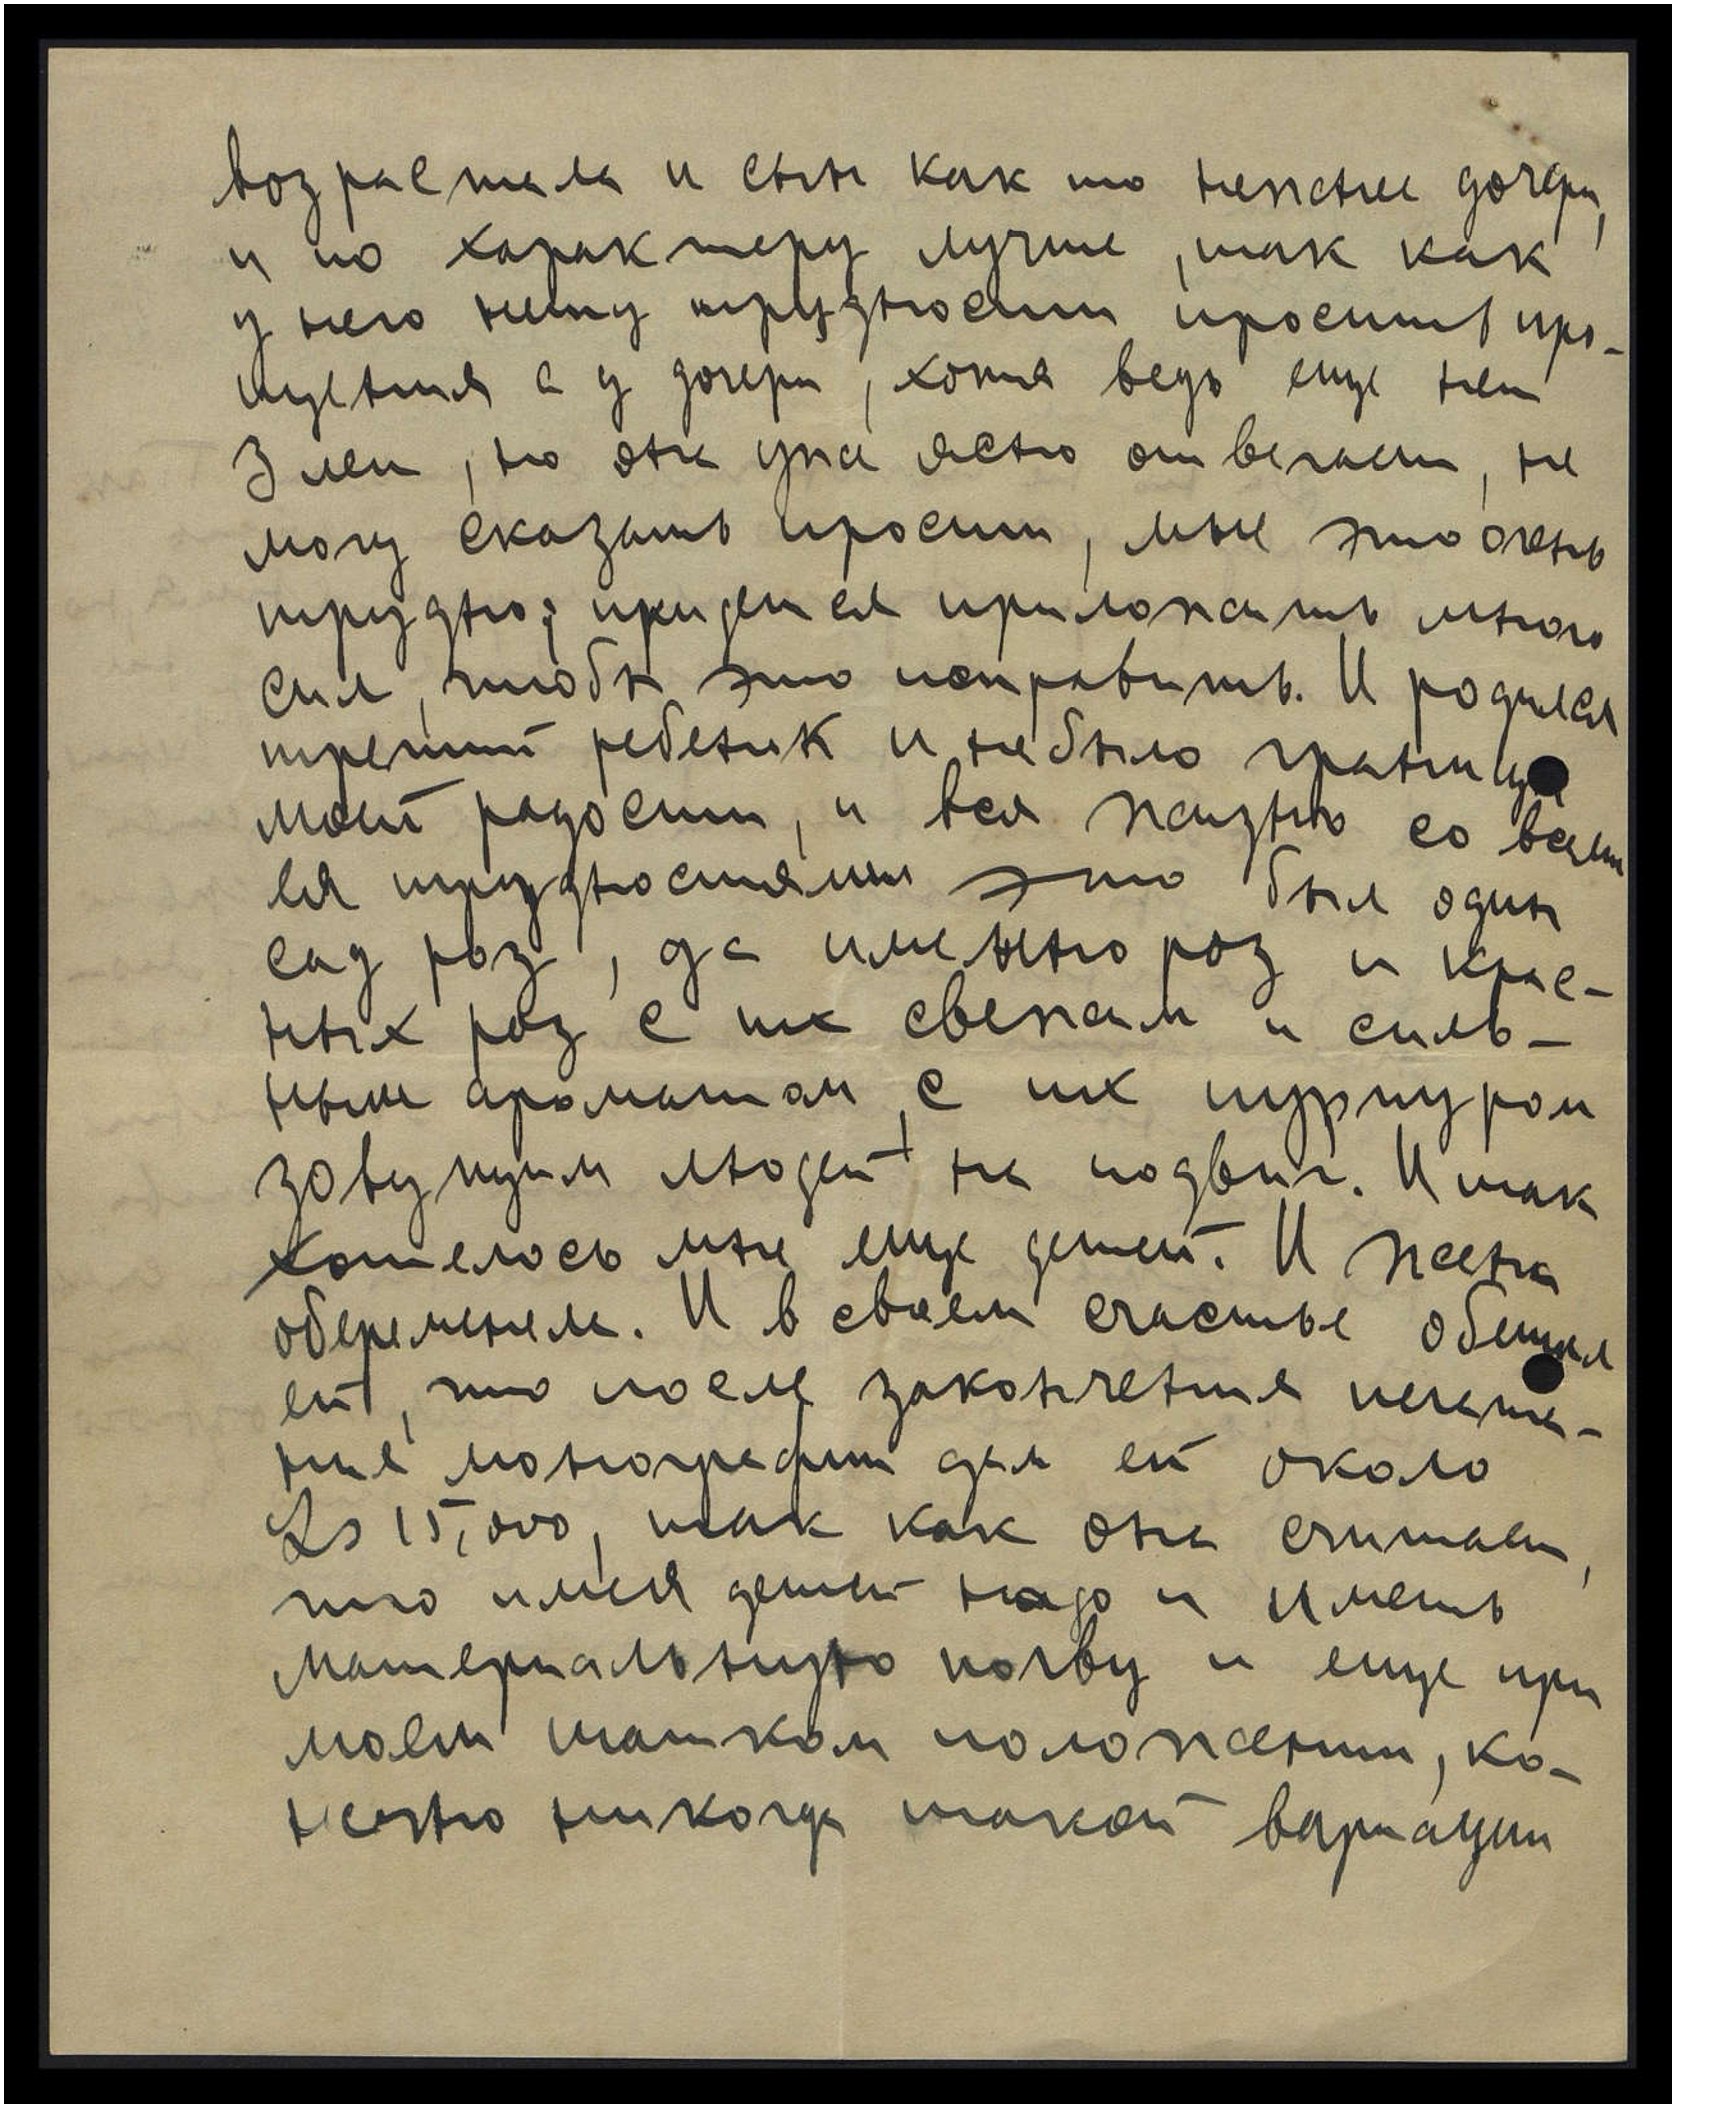 возрастала и сын как то нежнее дочери,
и по характеру лучше, так как
у него нету трудности просить про-
щения а у дочери, хотя ведь еще нет
3 лет, но она уже ясно отвечает, не
могу сказать прости, мне это очень
трудно; придется приложить много
сил, чтобы это исправить. И родился
третий ребенок и не было границ
моей радости, и вся жизнь со всеми
ея трудностями это был один
сад роз, да именно роз и крас-
ных роз с их свежим и силь-
ным ароматом, с их пурпуром
зовущим людей на подвиг. И так
хотелось мне еще детей. И жена
обеременела. И в своем счастье обещал
ей, что после закончения печата-
ния монографии дам ей около
Ls 15,000, так как она считает,
что имея детей надо и иметь
материальную почву и еще при
моем шатком положении, ко-
нечно никогда такой вариации